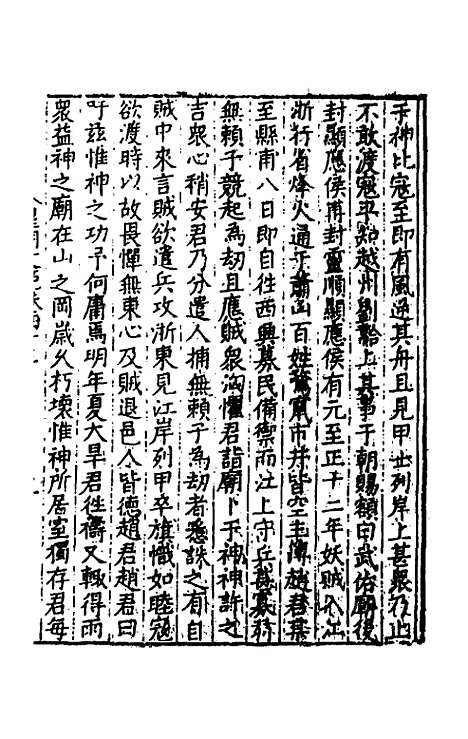 于神比寇至即有風逆其舟且見甲士列岸上甚衆後止
不敢渡寇平知越州劉韐上其事于朝賜額曰武佑廟後
封顯應侯再封靈順顯應侯有元至正十二年妖賊入江
浙行省烽火通于蕭山百姓驚竄市井皆空主簿趙君某
至縣甫八日即自往西興募民備禦而江上守兵甚寡
無賴子競起為劫且應賊衆洶懼君詣廟卜于神神許之
吉衆心稍安君乃分遣人捕無賴子為劫者悉誅之有自
賊中來言賊欲遣兵攻浙東見江岸列甲卒旗幟如睦寇
欲渡時以故畏憚無東心及賊退邑人皆德趙君趙君曰
吁玆惟神之功予何庸焉明年夏大旱君徃禱又輒得雨
衆益神之廟在山之岡歲久朽壞惟神所居室獨存君每